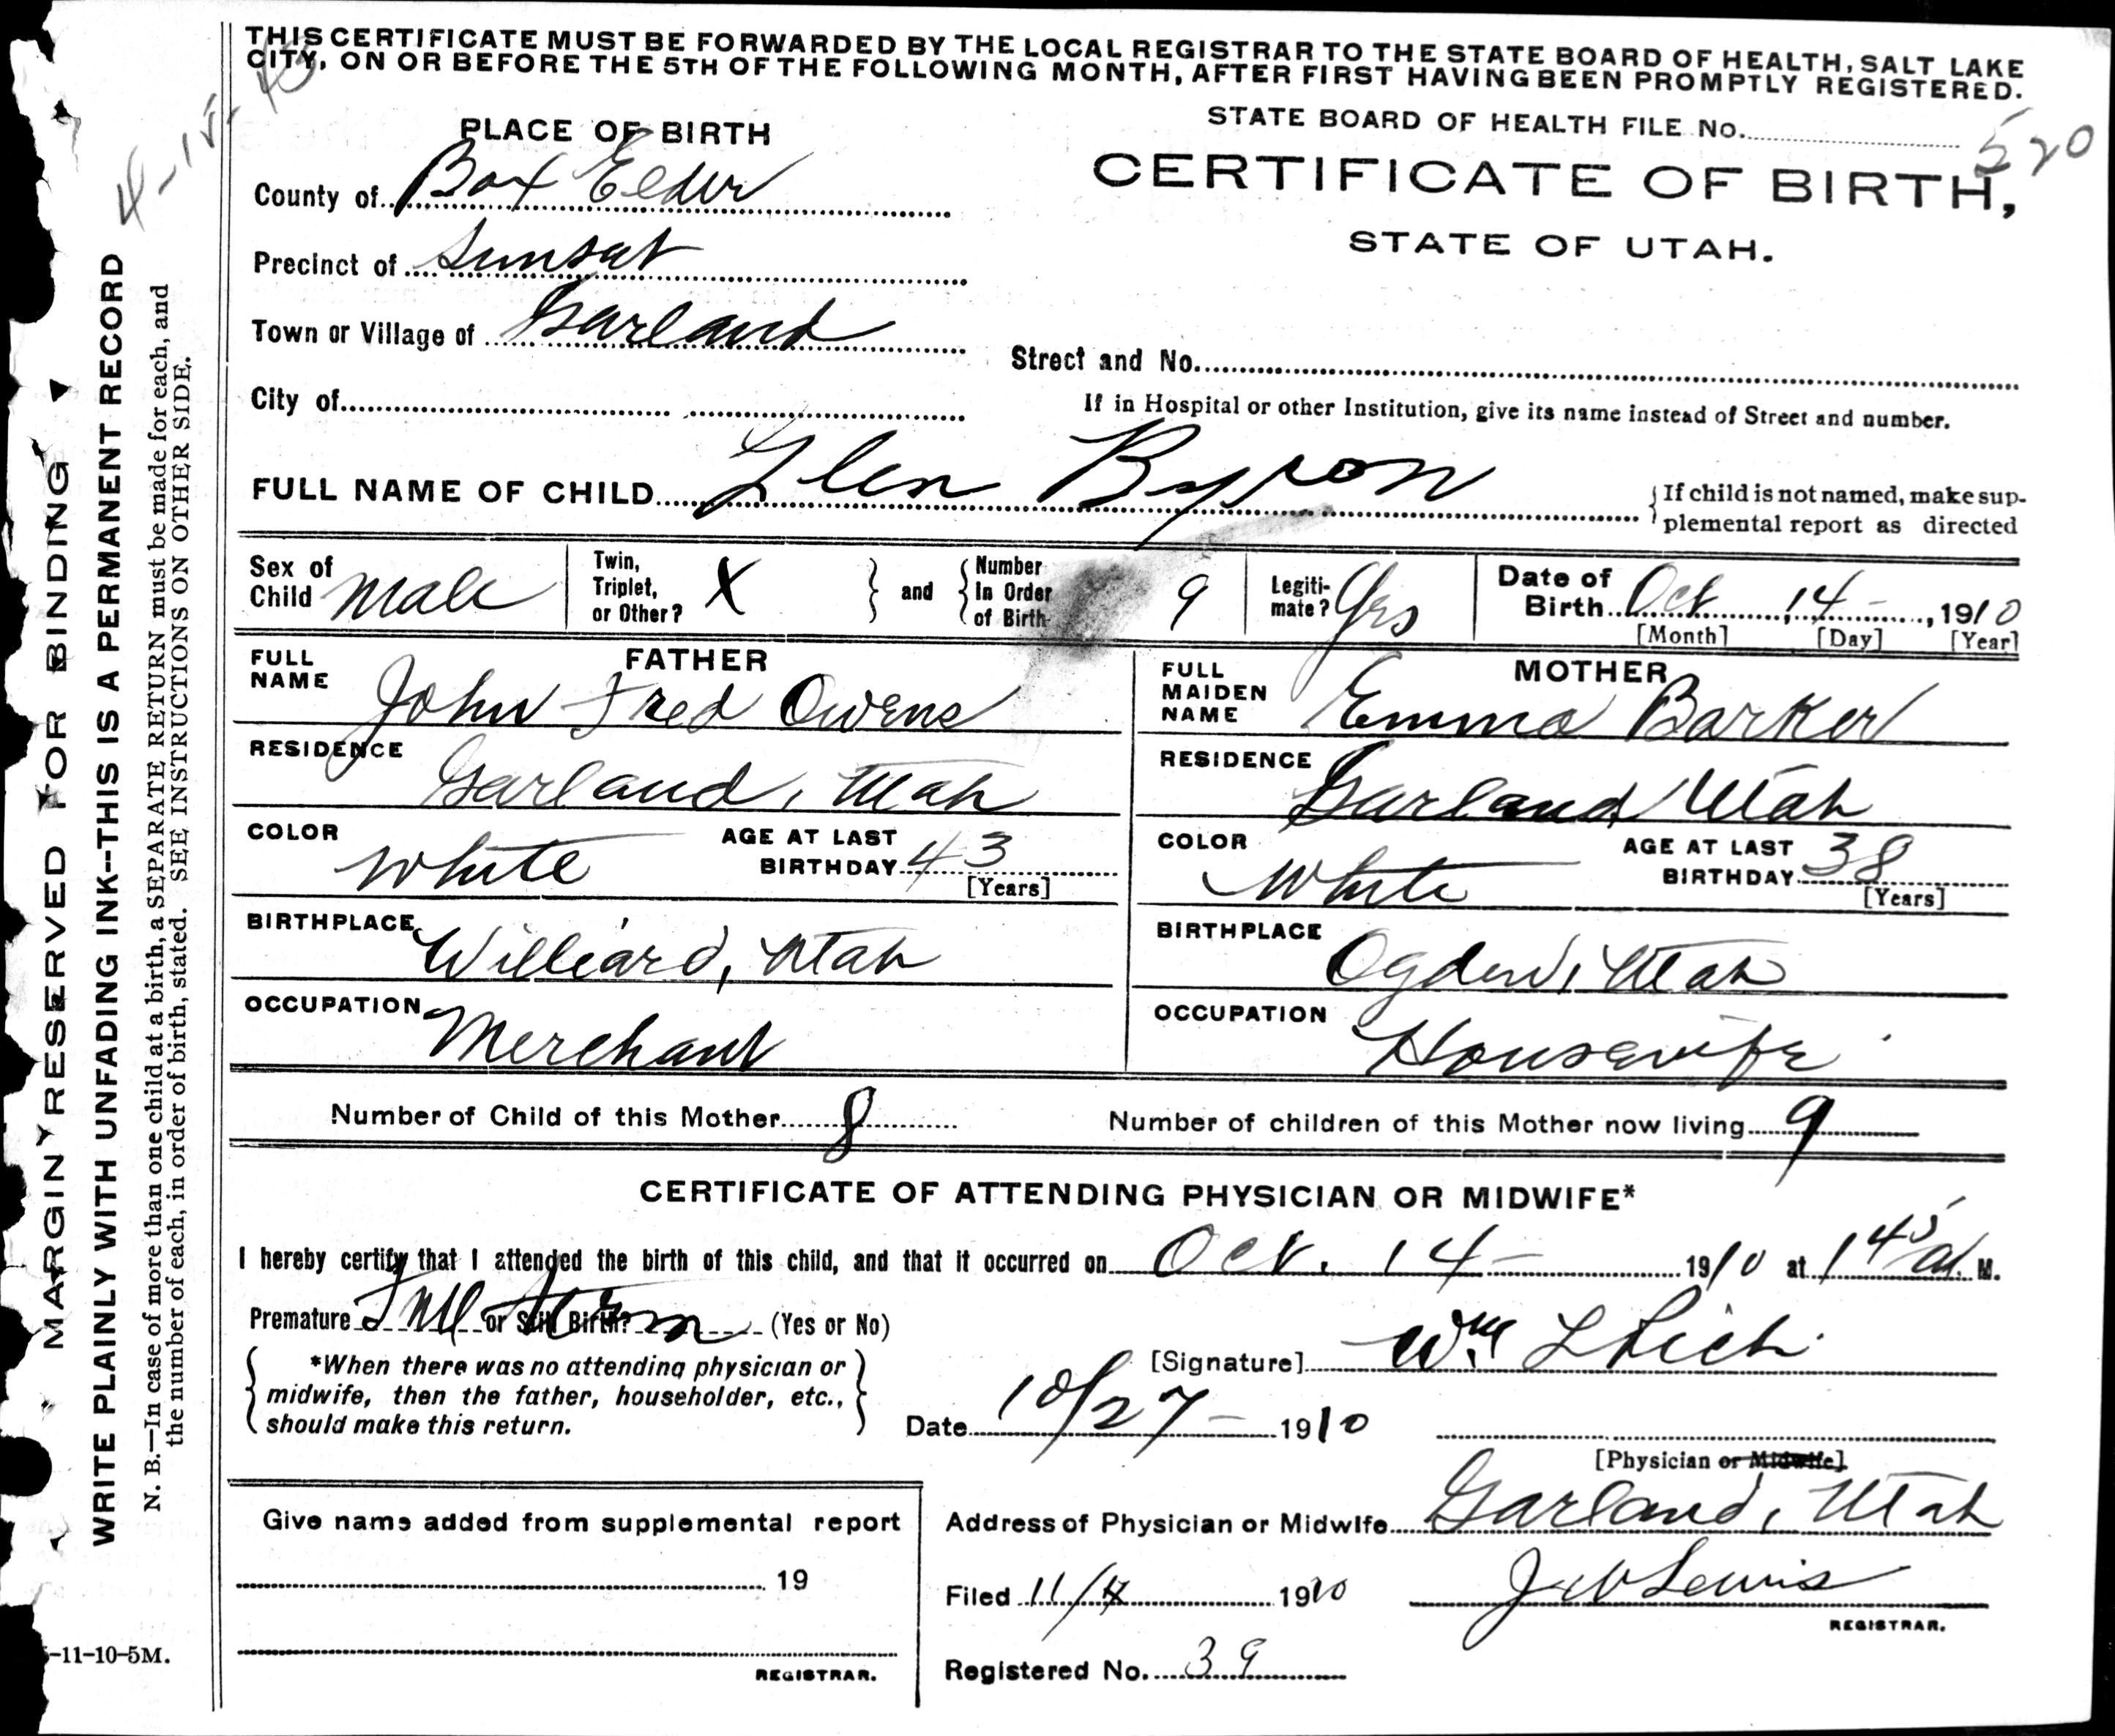 THIS CERTIFICATE MUST BE FORWARDED BY THE LOCAL REGISTRAR TO THE STATE BOARD OF HEALTH, SALT LAKE
CITY, ON OR BEFORE THE 5TH OF THE FOLLOWING MONTH, AFTER FIRST HAVING BEEN PROMPTLY REGISTERED.
STATE BOARD OF HEALTH FILE No. 520
PLACE OF BIRTH
CERTIFICATE OF BIRTH,
STATE OF UTAH.
County of Box Elder
Precinct of Sunset
Town or Village of Garland
Street and No.
City of
If in Hospital or other Institution, give its name instead of Street and number.
FULL NAME OF CHILD Glen Byron
If child is not named, make sup-
plemental report as directed
Sex of Child Male
Twin, Triplet, or Other? X
and Number In Order of Birth 9
Legiti-mate? Yes
Date of Birth Oct 14 -, 1910
[Month] [Day] [Year]
FATHER
FULL NAME John Fred Owens
RESIDENCE Garland, Utah
COLOR White AGE AT LAST BIRTHDAY 43 [Years]
BIRTHPLACE Williard, Utah
OCCUPATION Merchant
MOTHER
FULL MAIDEN NAME Emma Barker
RESIDENCE Garland Utah
COLOR White AGE AT LAST BIRTHDAY 38 [Years]
BIRTHPLACE Ogden, Utah
OCCUPATION Housewife
Number of Child of this Mother 8 Number of children of this Mother now living 9
CERTIFICATE OF ATTENDING PHYSICIAN OR MIDWIFE*
I hereby certify that I attended the birth of this child, and that it occurred on Oct. 14 - 1910 at 1 45 a M.
Premature Full or Still Birth? term (Yes or No)
*When there was no attending physician or
midwife, then the father, householder, etc.,
should make this return.
[Signature] Wm L Rich
Date 10/27 - 1910
[Physician or Midwife]
Give name added from supplemental report
19
REGISTRAR.
Address of Physician or Midwife Garland, Utah
Filed 11/4 1910 J W Lewis
REGISTRAR.
Registered No. 39
MARGIN RESERVED FOR BINDING
WRITE PLAINLY WITH UNFADING INK--THIS IS A PERMANENT RECORD
N. B.—In case of more than one child at a birth, a SEPARATE RETURN must be made for each, and
the number of each, in order of birth, stated. SEE INSTRUCTIONS ON OTHER SIDE.
-11-10-5M.